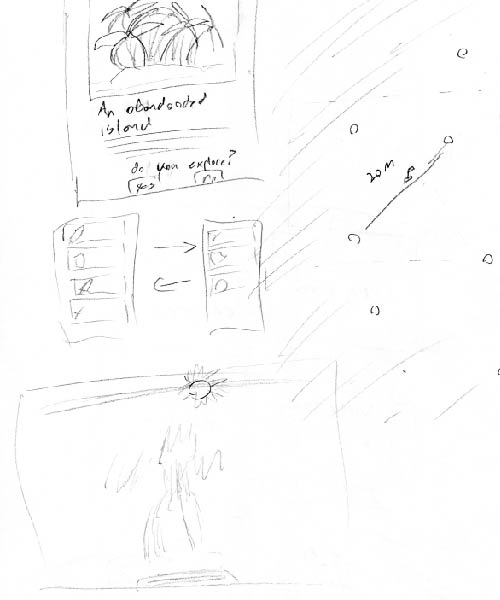 An abandonded
island
do you explore?
yes no
20 M